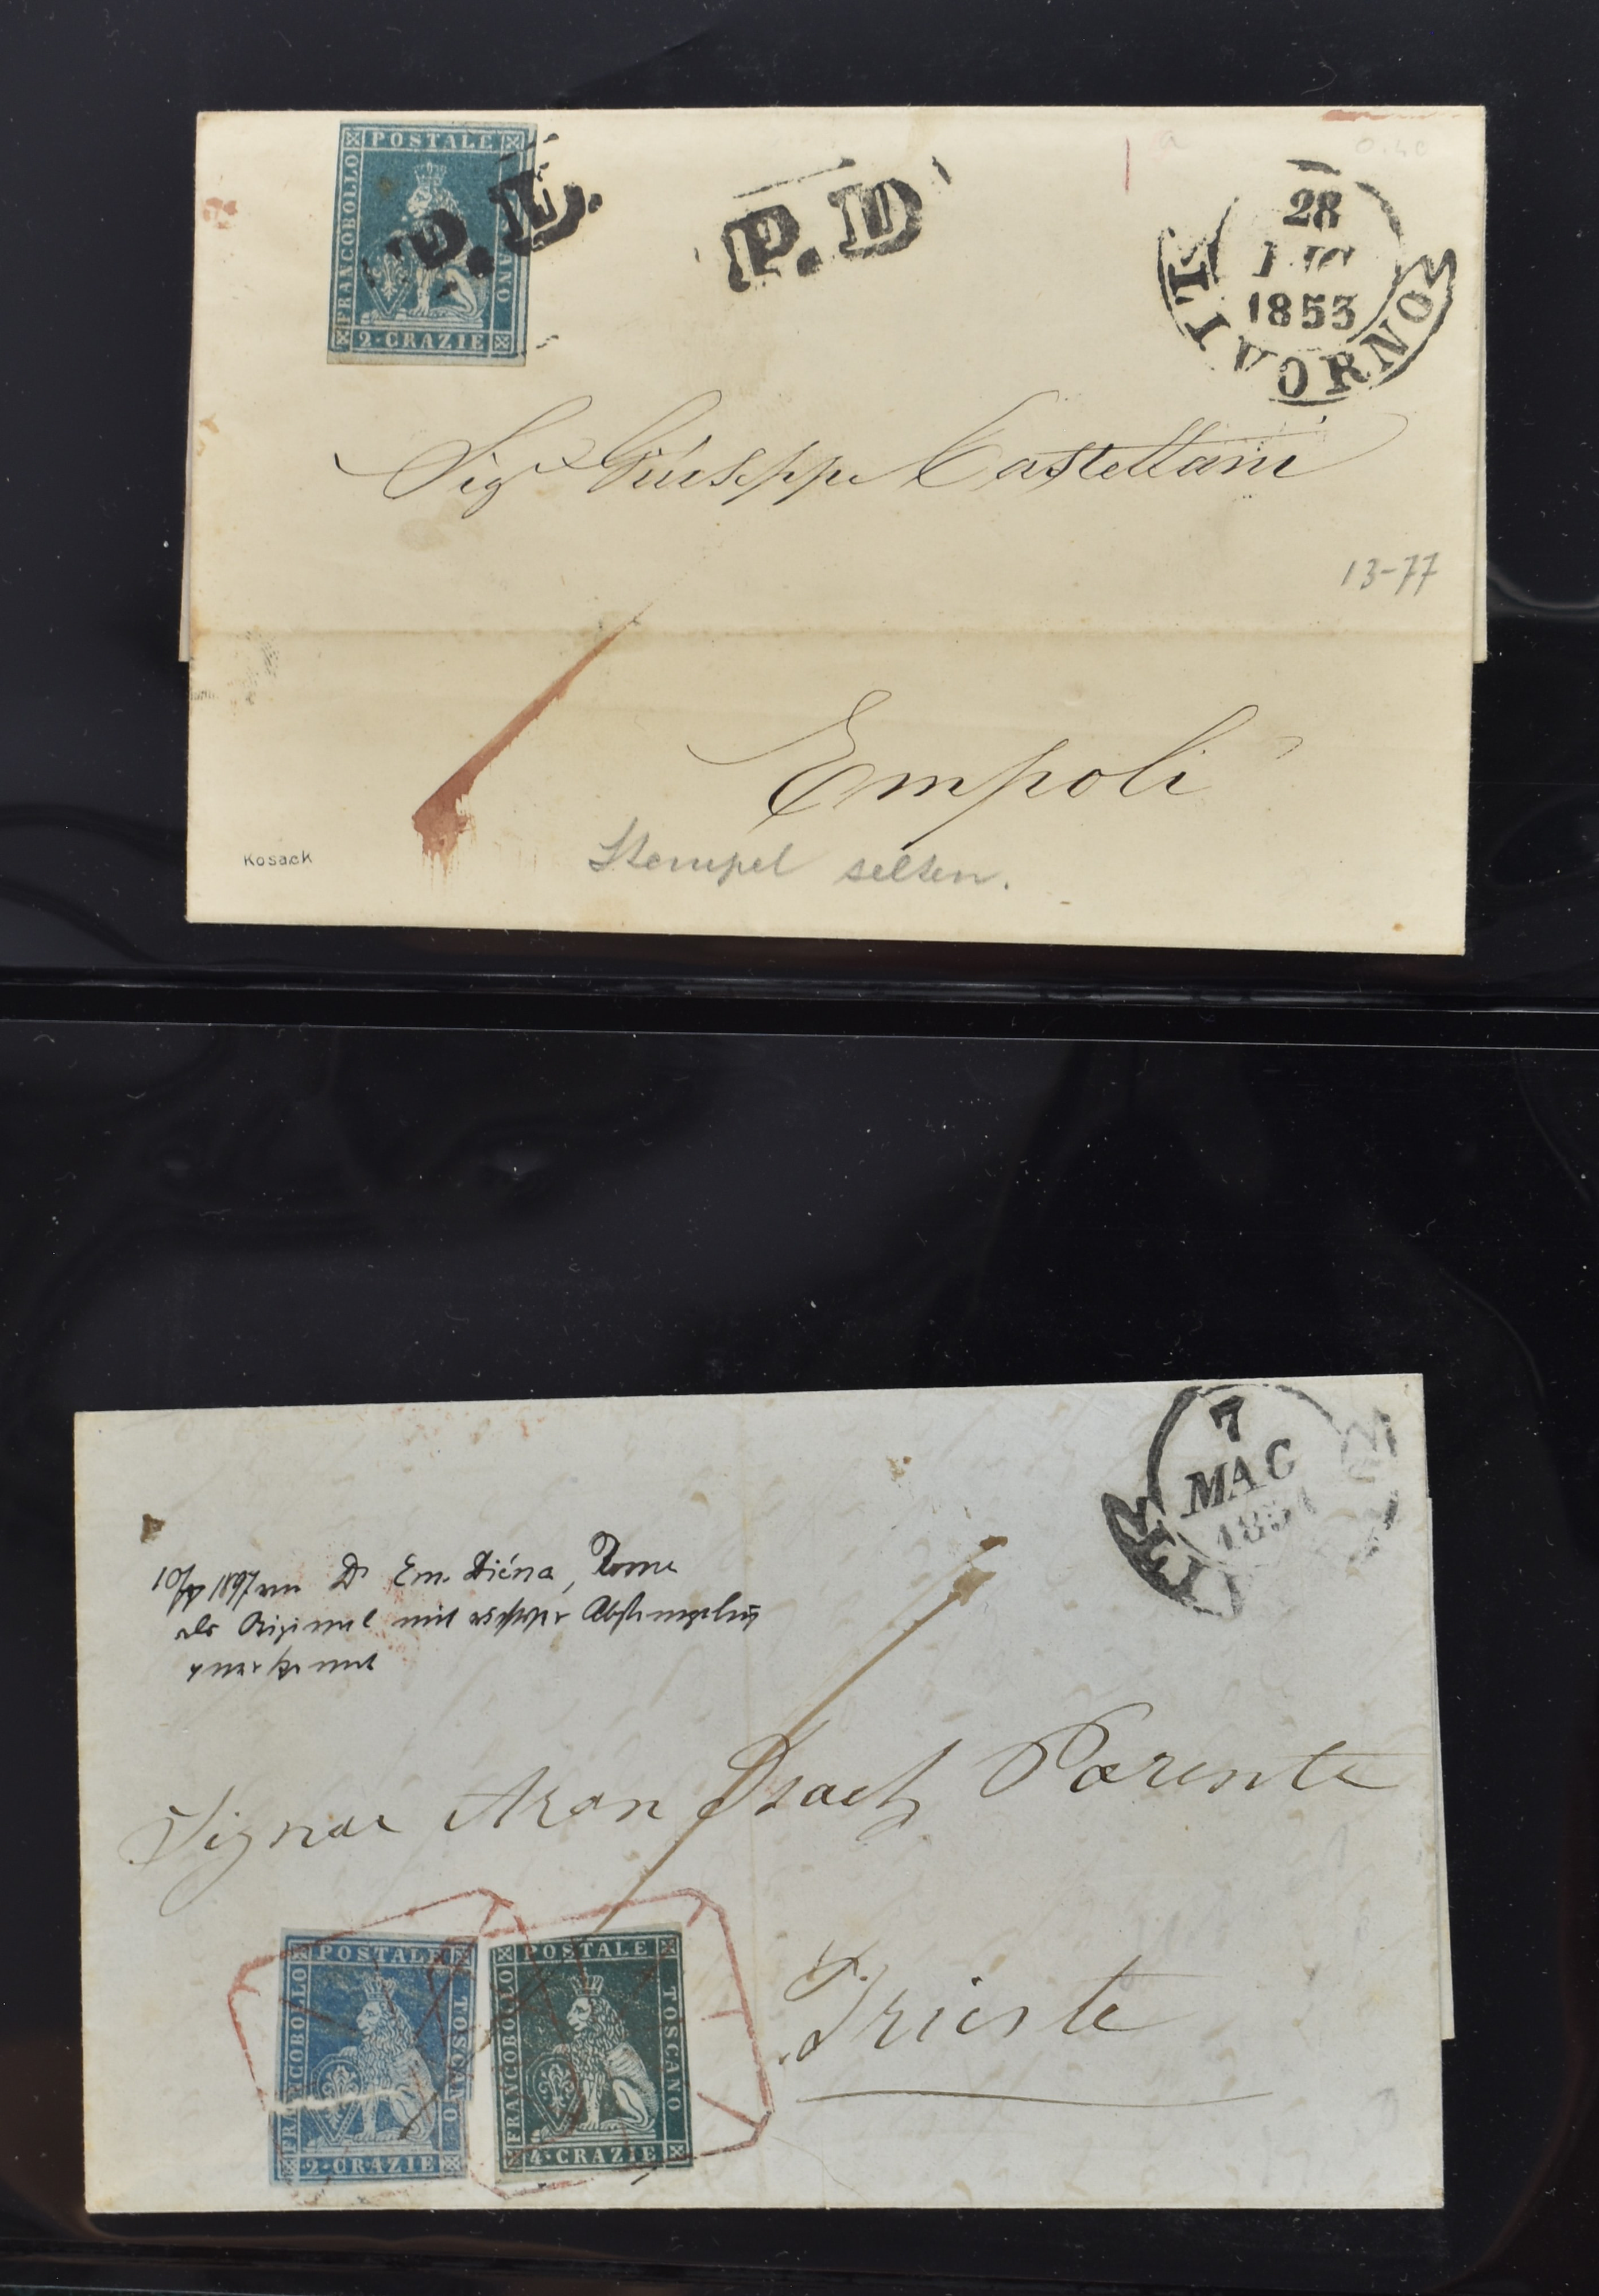 POSTALE
FRANCOBOLLO
2·CRAZIE
P.D.
P.D
28
1853
LIVORNO
Sigr Giuseppe Castellani
13-77
Empoli
Kosack
Stempel selten.
7
MAG
1851
10/IV 1897 von Dr Em. Diéna, Rome
als Original mit echter Abstempelung
anerkannt
Signor Aron Isach Parente
Trieste
POSTALE
FRANCOBOLLO
TOSCANO
2·CRAZIE
POSTALE
FRANCOBOLLO
TOSCANO
4·CRAZIE